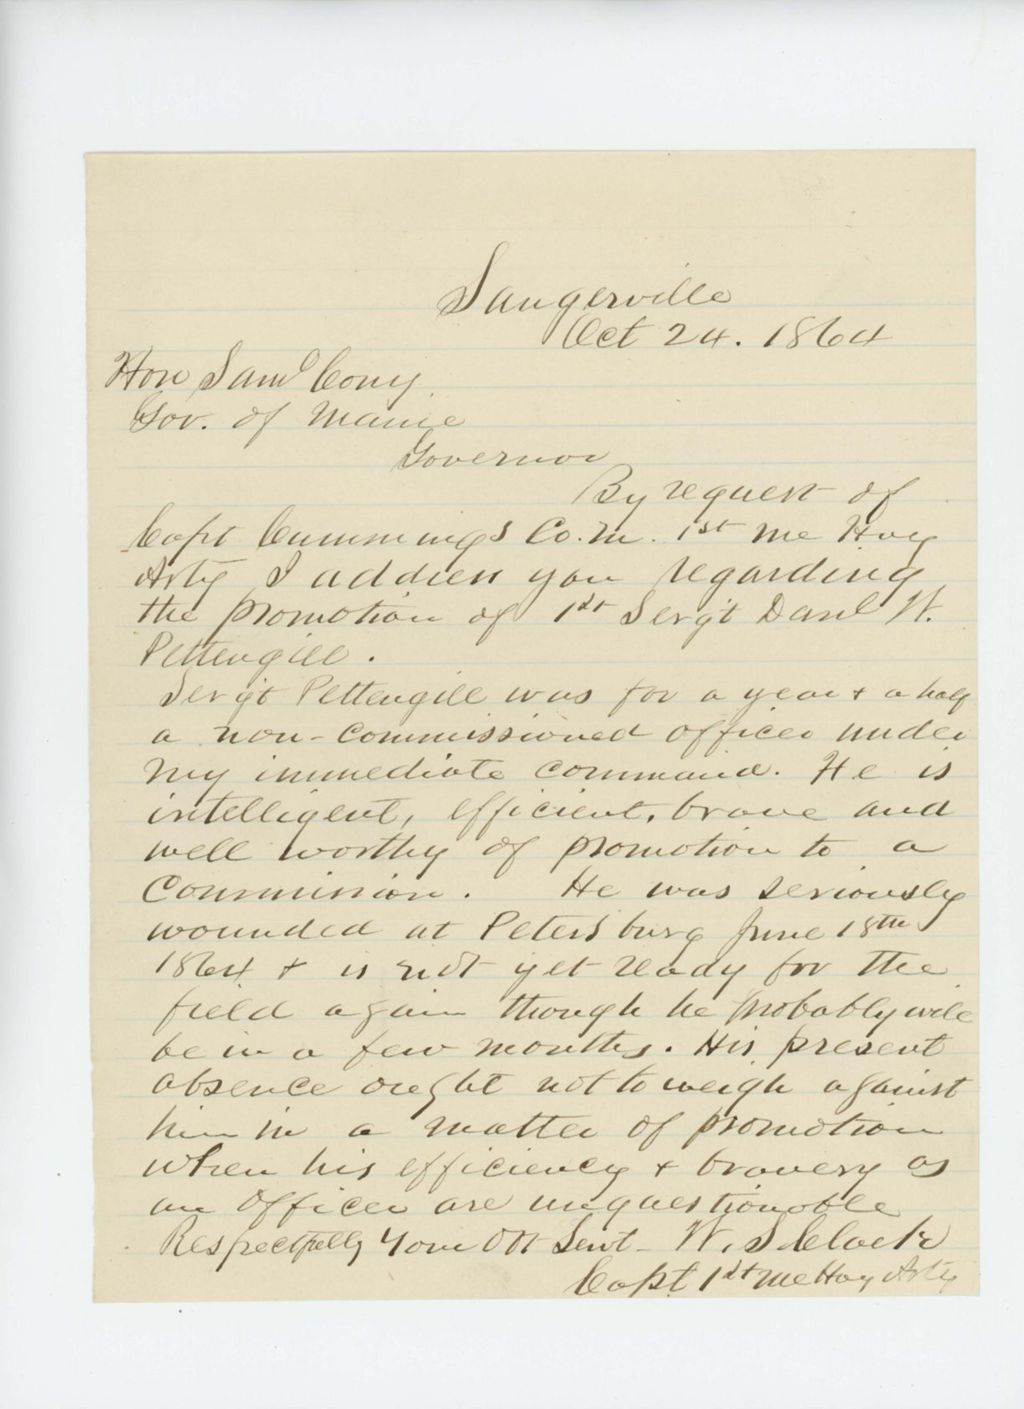 Sangerville
Oct 24. 1864
Hon Saml Cony
Gov. of Maine
Governor
By request of
Capt Cummings Co. M. 1st Me Hvy
Arty I address you regarding
the promotion of 1st Serg't Danl W.
Pettengill.
Serg't Pettengill was for a year & a half
a non-commissioned officer under
my immediate command. He is
intelligent, efficient, brave and
well worthy of promotion to a
Commission. He was seriously
wounded at Petersburg June 18th
1864 & is not yet ready for the
field again though he probably will
be in a few months. His present
absence ought not to weigh against
him in a matter of promotion
when his efficiency & bravery as
an officer are unquestionable
Respectfully Your Obt Servt W. S. Clark
Capt 1st Me Hvy Arty